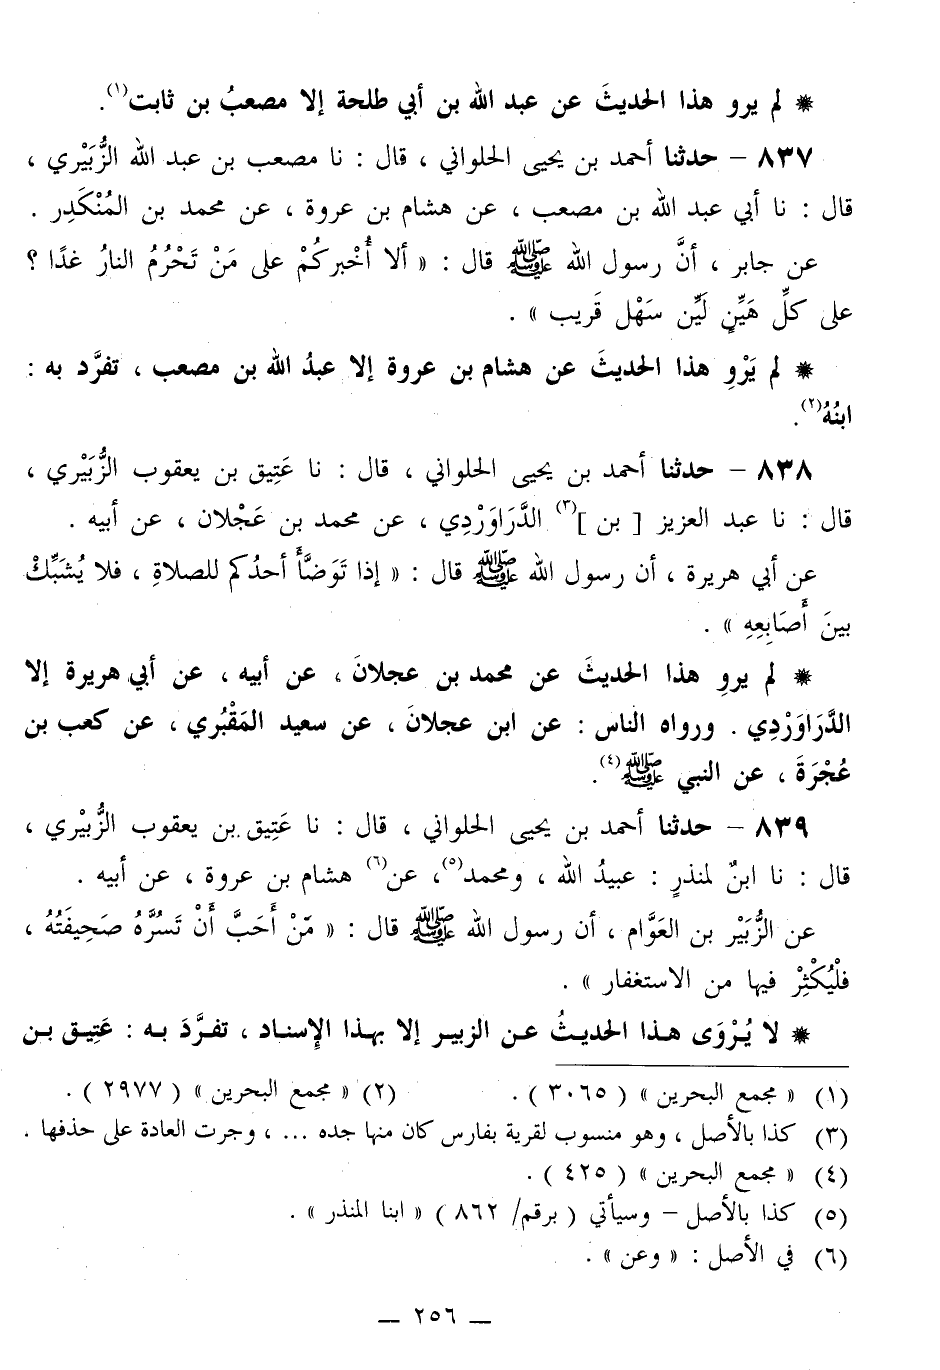 * لم يرو هذا الحديثَ عن عبد الله بن أبي طلحة إلا مصعبُ بن ثابت(١).
٨٣٧ - حدثنا أحمد بن يحيى الحلواني ، قال : نا مصعب بن عبد الله الزُّبَيْري ،
قال : نا أبي عبد الله بن مصعب ، عن هشام بن عروة ، عن محمد بن المُنْكَدِر .
عن جابر ، أنَّ رسول الله ﷺ قال : « ألا أُخْبركُمْ على مَنْ تَحْرُمُ النارُ غدًا ؟
على كلِّ هَيِّنٍ لَيِّن سَهْل قَريب » .
* لم يَرْوِ هذا الحديثَ عن هشام بن عروة إلا عبدُ الله بن مصعب ، تفرَّد به :
ابنُهُ(٢).
٨٣٨ - حدثنا أحمد بن يحيى الحلواني ، قال : نا عَتِيق بن يعقوب الزُّبَيْري ،
قال : نا عبد العزيز [ بن ](٣) الدَّرَاوَرْدِي ، عن محمد بن عَجْلان ، عن أبيه .
عن أبي هريرة ، أن رسول الله ﷺ قال : « إذا تَوَضَّأَ أحدُكم للصلاةِ ، فلا يُشَبِّكْ
بينَ أَصَابِعِهِ » .
* لم يروِ هذا الحديثَ عن محمد بن عجلانَ ، عن أبيه ، عن أبي هريرة إلا
الدَّرَاوَرْدِي . ورواه الناس : عن ابن عجلانَ ، عن سعيد المَقْبُري ، عن كعب بن
عُجْرَةَ ، عن النبي ﷺ(٤).
٨٣٩ - حدثنا أحمد بن يحيى الحلواني ، قال : نا عَتِيق بن يعقوب الزُّبَيْري ،
قال : نا ابنٌ لمنذرٍ : عبيدُ الله ، ومحمد(٥)، عن(٦) هشام بن عروة ، عن أبيه .
عن الزُّبَيْر بن العَوَّام ، أن رسول الله ﷺ قال : « مَّنْ أَحَبَّ أَنْ تَسُرَّهُ صَحِيفَتُهُ ،
فلْيُكْثِرْ فيها من الاستغفار » .
* لا يُرْوَى هذا الحديثُ عن الزبير إلا بهذا الإسناد ، تفرَّدَ به : عَتِيق بن
(١) « مجمع البحرين » ( ٣٠٦٥ ) . (٢) « مجمع البحرين » ( ٢٩٧٧ ) .
(٣) كذا بالأصل ، وهو منسوب لقرية بفارس كان منها جده ... ، وجرت العادة على حذفها .
(٤) « مجمع البحرين » ( ٤٢٥ ) .
(٥) كذا بالأصل - وسيأتي ( برقم/ ٨٦٢ ) « ابنا المنذر » .
(٦) في الأصل : « وعن » .
— ٢٥٦ —